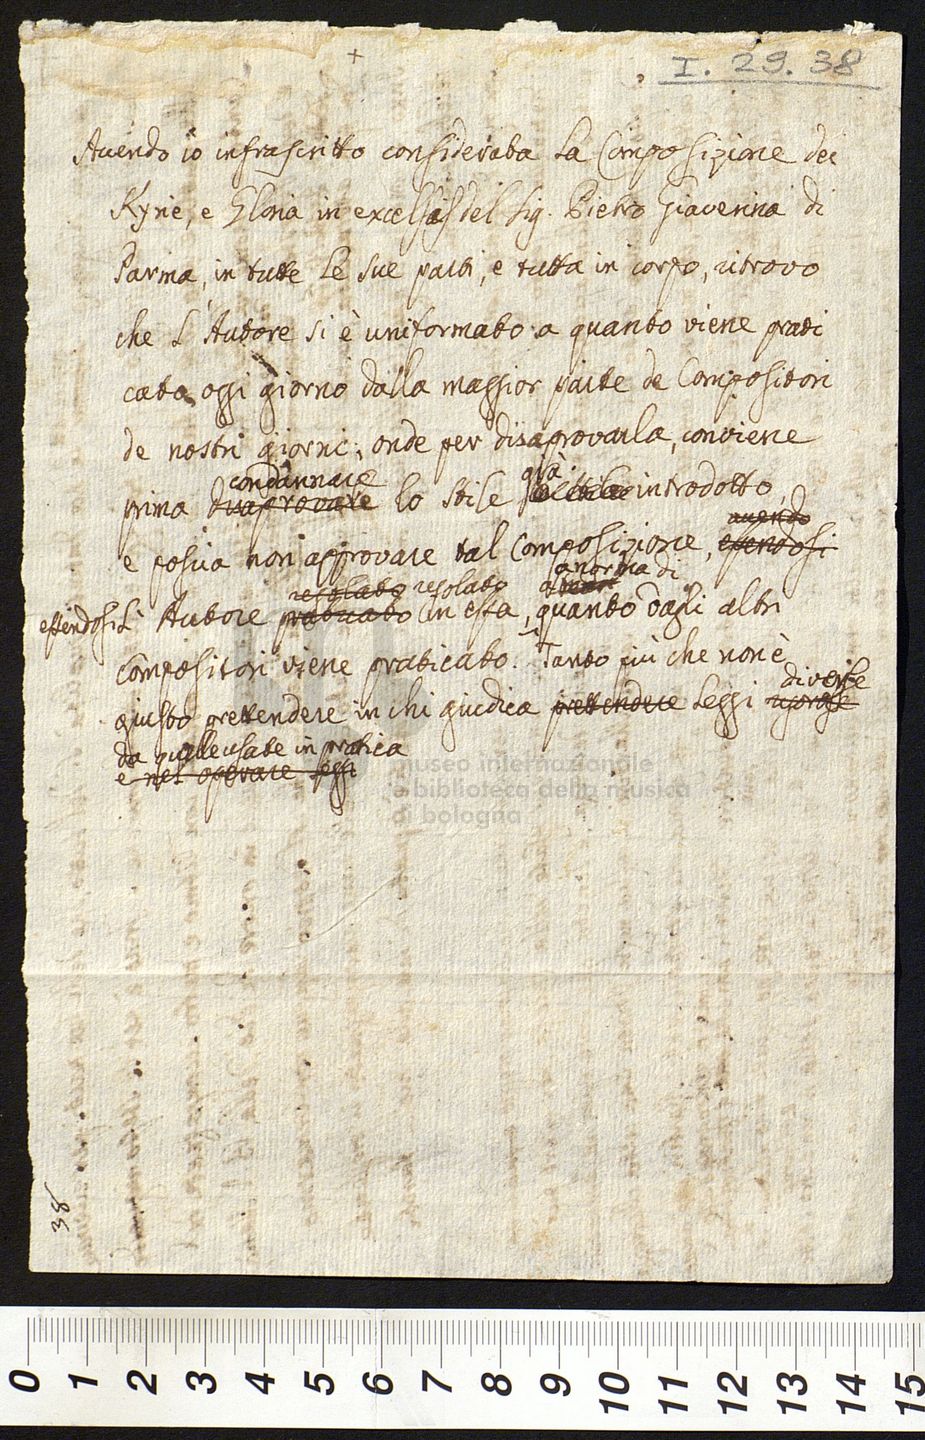 +
I. 29. 38
Avendo io infrascritto considerata la Composizione dei
Kyrie, e Gloria in excelsis del Sig. Pietro Giaverina di
Parma, in tutte le sue parti, e tutta in corpo, ritrovo
che l'Autore si è uniformato a quanto viene prati
cato oggi giorno dalla maggior parte de Compositori
de nostri giorni; onde per disaprovarla, conviene
condannare già
prima disaprovare lo stile introdotto,
avendo
e poscia non approvare tal Composizione, essendosi
regolato regolato a norma di
essendosi l'Autore praticato in essa, quanto dagli altri
Compositori viene praticato. Tanto più che non è
diverse
giusto prettendere in chi giudica prettendere leggi rigorose
da quelle usate in pratica
e nel operare leggi
museo internazionale
e biblioteca della musica
di bologna
38
0 1 2 3 4 5 6 7 8 9 10 11 12 13 14 15